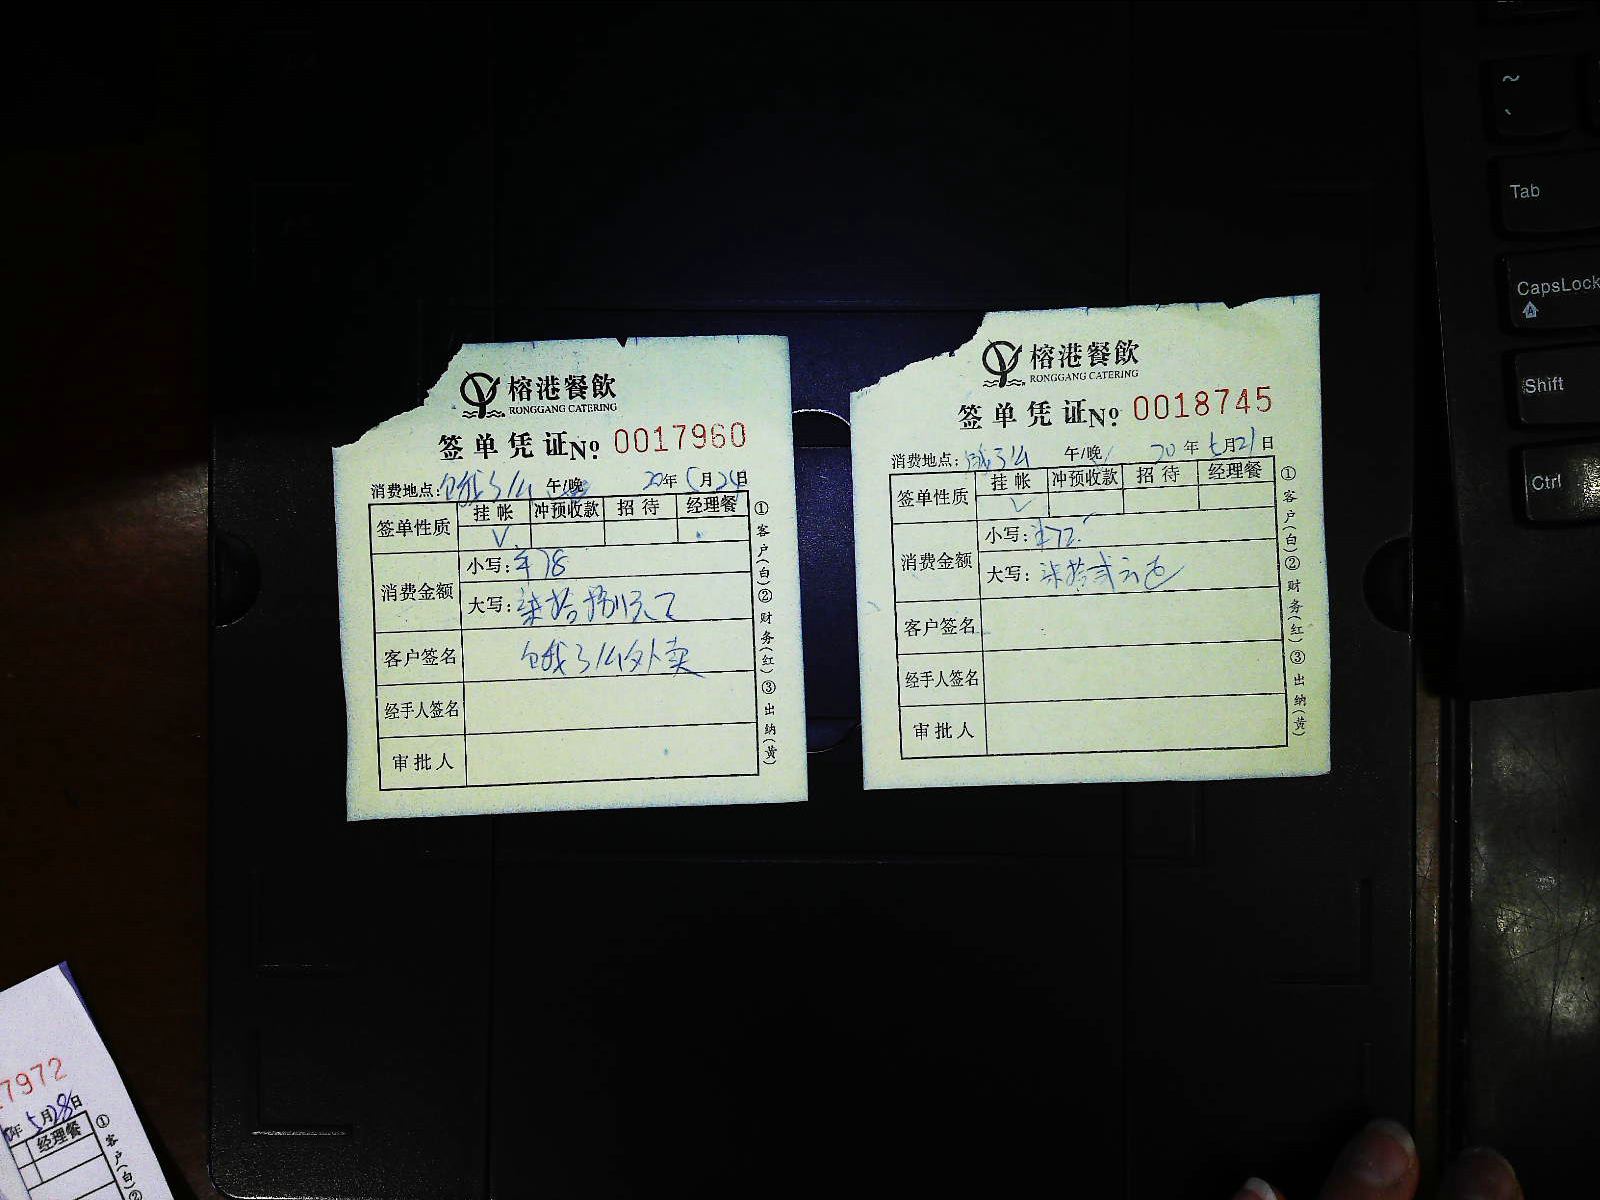 榕港餐飲
RONGGANG CATERING
签单凭证 No. 0017960
消费地点: 饿了么 午/晚 20年5月24日
签单性质 挂帐 冲预收款 招待 经理餐
√
消费金额 小写: ¥78
大写: 柒拾捌元
客户签名 饿了么外卖
经手人签名
审批人
①客户(白)②财务(红)③出纳(黄)
榕港餐飲
RONGGANG CATERING
签单凭证 No. 0018745
消费地点: 饿了么 午/晚 20年5月21日
签单性质 挂帐 冲预收款 招待 经理餐
√
消费金额 小写: ¥72
大写: 柒拾贰元
客户签名
经手人签名
审批人
①客户(白)②财务(红)③出纳(黄)
7972
年5月28日
经理餐
①客户(白)②
~
`
Tab
CapsLock
Shift
Ctrl